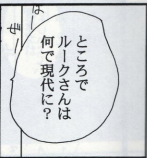 ところで
ルークさんは
何で現代に？
は
ぜー